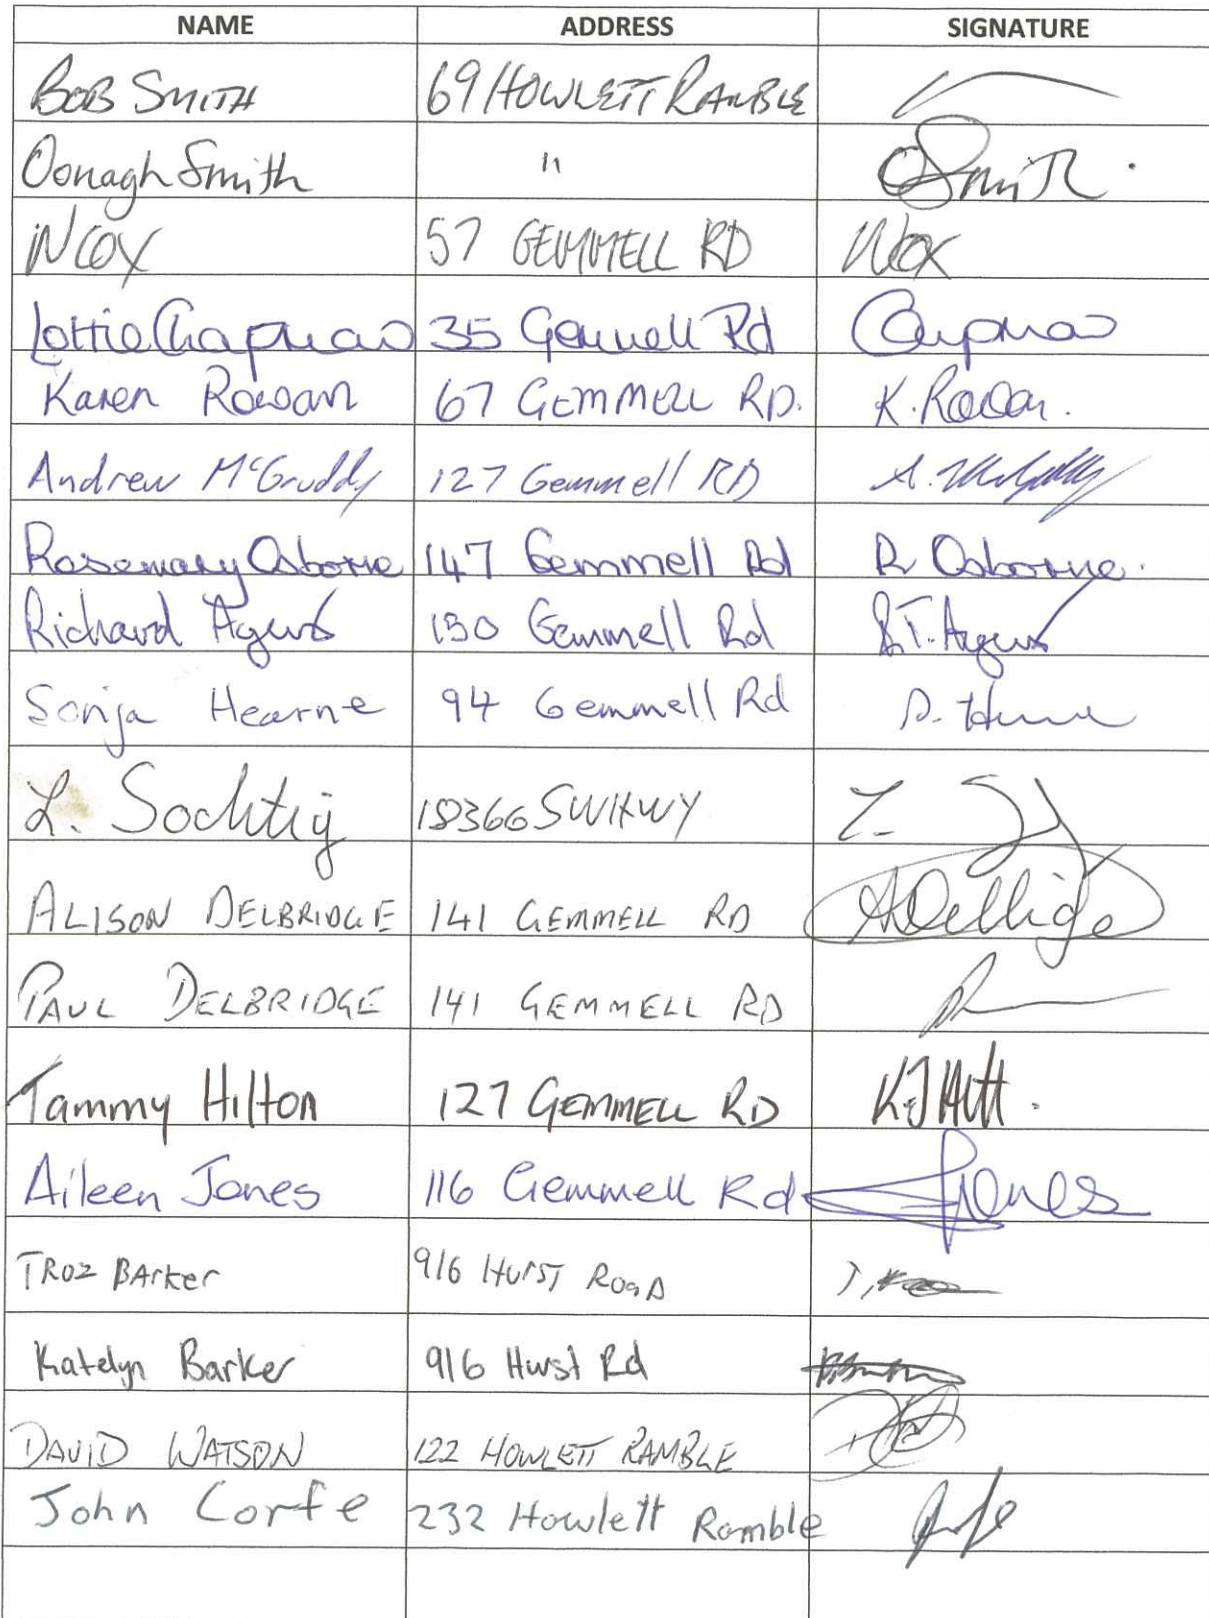 NAME ADDRESS SIGNATURE
BOB SMITH 69 HOWLETT RAMBLE
Oonagh Smith " OSmith
N COX 57 GEMMELL RD NCox
Lottie Chapman 35 Gemmell Rd Chapman
Karen Rowan 67 GEMMELL RD. K. Rowan.
Andrew McGruddy 127 Gemmell RD
Rosemary Osborne 147 Gemmell Rd R Osborne.
Richard Agus 130 Gemmell Rd R.T. Agus
Sonja Hearne 94 Gemmell Rd S. Hearne
L. Sochtig 18366 SWHWY L.
ALISON DELBRIDGE 141 GEMMELL RD
PAUL DELBRIDGE 141 GEMMELL RD
Tammy Hilton 127 GEMMELL RD
Aileen Jones 116 Gemmell Rd AJones
TROZ BArker 916 HURST ROaD
Katelyn Barker 916 Hurst Rd
DAVID WATSON 122 HOWLETT RAMBLE
John Corfe 232 Howlett Ramble